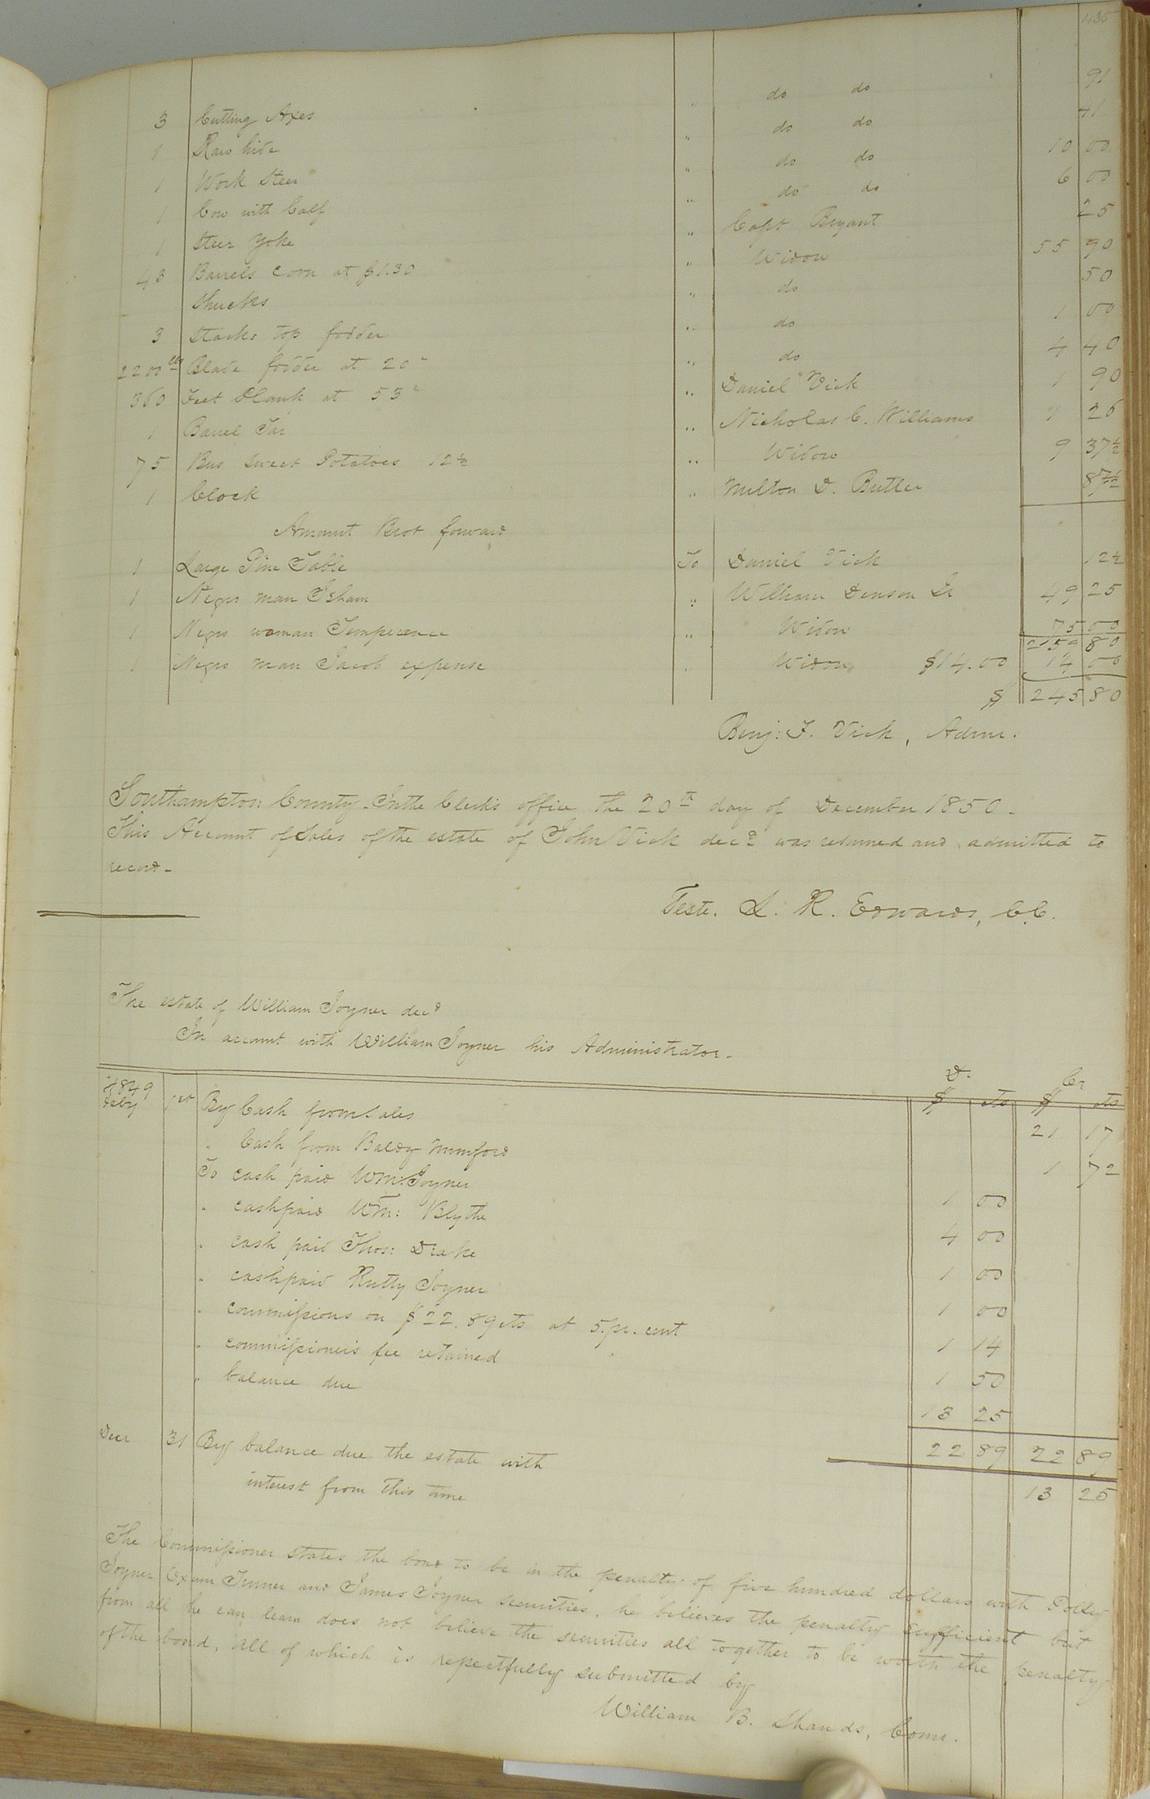 3 Cutting Axes " do do 91
1 Raw hide " do do 41
1 Work Steer " do do 10 00
1 Cow with Calf " do do 6 00
1 Steer Yoke " Capt Bryant 25
43 Barrels Corn at $1.30 " Widow 55 90
Shucks " do 50
3 Stacks top fodder " do 1 00
2200 lbs Blade fodder at 20c " do 4 40
360 Feet Plank at 53c " Daniel Vick 1 90
1 Barrel Tar " Nicholas C. Williams 26
75 Bus Sweet Potatoes 12½ " Widow 9 37½
1 Clock " Milton D. Butler 87½
Amount Brot forward
1 Large Pine Table To Daniel Vick 12½
1 Negro man Isham " William Denson Sr 49 25
1 Negro woman Temperence " Widow 75 00
2159 80
1 Negro man Jacob expense " Widow $14.00 14 00
$ 245 80
Benj: F. Vick, Admr.
Southampton County. In the Clerk's office the 20th day of December 1850.
This Account of Sales of the estate of John Vick decd was returned and admitted to
record.
Teste. L. R. Edwards, C.C.
The estate of William Joyner decd
In account with William Joyner his Administrator.
Dr Cr
$ cts $ cts
1849 Feby 1st By Cash from Sales 21 17
" Cash from Baldy Mumford 1 72
To cash paid Wm. Joyner 1 00
" cash paid Wm: Blythe 4 00
" cash paid Thos: Drake 1 00
" cash paid Rutty Joyner 1 00
" commissions on $22.89 cts at 5 pr. cent 1 14
" commissioner's fee retained 1 50
" balance due 13 25
22 89 22 89
Decr 31 By balance due the estate with
interest from this time 13 25
The Commissioner states the bond to be in the penalty of five hundred dollars with Polly
Joyner, Exum Turner and James Joyner securities, he believes the penalty sufficient but
from all he can learn does not believe the securities all together to be worth the penalty
of the bond, all of which is repectfully submitted by
William B. Shands, Comr.